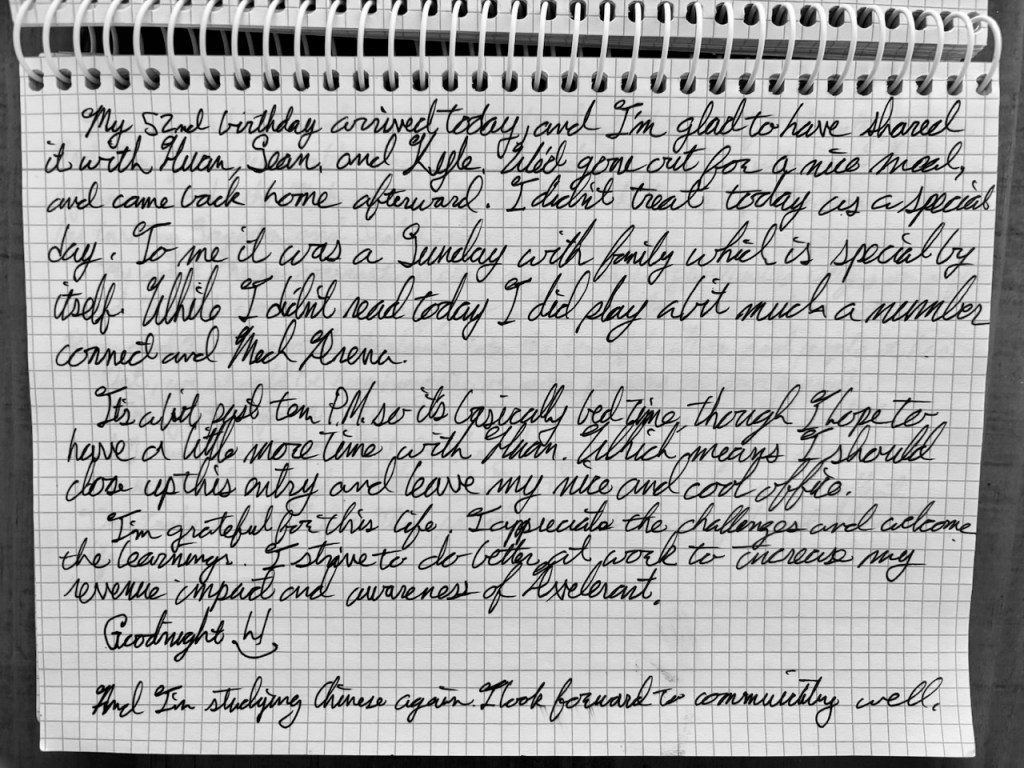 My 52nd birthday arrived today, and I'm glad to have shared
it with Huan, Sean, and Kyle. We'd gone out for a nice meal,
and came back home afterward. I didn't treat today as a special
day. To me it was a Sunday with family which is special by
itself. While I didn't read today I did play a bit much a number
connect and Mech Arena.
It's a bit past ten P.M. so it's basically bed time, though I hope to
have a little more time with Huan. Which means I should
close up this entry and leave my nice and cool office.
I'm grateful for this life. I appreciate the challenges and welcome
the learnings. I strive to do better at work to increase my
revenue impact and awareness of Axelerant.
Goodnight
And I'm studying Chinese again. I look forward to well.